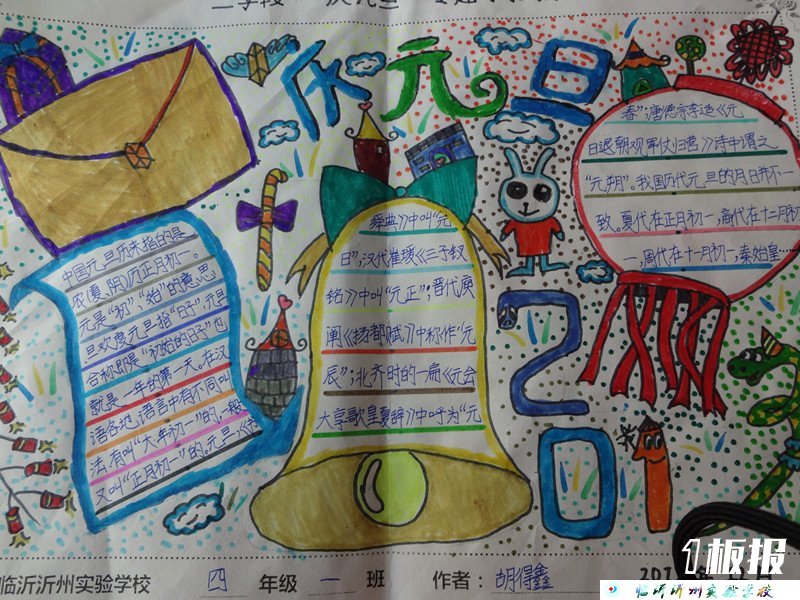 庆元旦
中国元旦历来指的是
农(夏、阴)历正月初一。
元是"初""始"的意思
旦欢度元旦指"日子",元旦
合称即是"初始的日子"也
就是一年的第一天。在汉
语各地,语言中有不同叫
法,有叫"大年初一"的,一般
又叫"正月初一"的。元旦,《书
舜典》中叫"元
日",汉代崔瑗《三子钗
铭》中叫"元正";晋代庾
阐《扬都赋》中称作"元
辰";北齐时的一扁《元会
大享歌皇夏辞》中呼为"元
春";唐德宗李适《元
日退朝观军仗归营》诗中谓之
"元朔"。我国历代元旦的月日并不一
致。夏代在正月初一,商代在十二月初
一,周代在十一月初一,秦始皇…
201
临沂沂州实验学校 四 年级 一 班 作者: 胡得鑫 201
1板报
临沂沂州实验学校